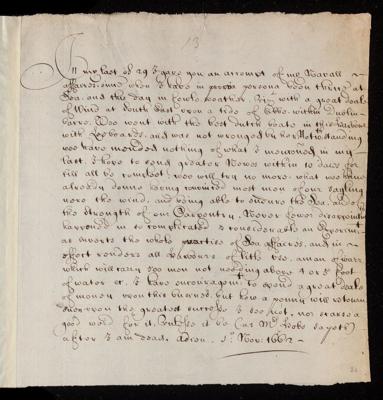 13
In my last of 29 I gave you an account of my Navall
affaires since when I have in persona been there at
Sea. and this day in fowle weather with a great deale
of Wind at South East upon a tide of Ebbe within Dublin
barre. Wee went with the best dutch boate in this Harbour
with Leeboards, and was not wronged by her Notwithstanding
wee have mended nothing of what I mentioned in my
last. I hope to send greater Newes within 10 dayes for
till all be compleat wee will try no more. what wee have
already donne having convinced most men of our sayling
neere the wind, and being able to endure the Sea, and of
the strength of our Carpentry. Never fewer
happened in so complicated & considerable an Experiment
as inverts the whole practice of Sea affaires, and in
effect renders all Harbours of little use. a man of warre
which will carry 500 men not needing above 4 or 5 foot
of water &c. I have encouragement to spend a great deale
of money upon this business, but how a penny will returne
upon the greatest success I see not, nor scarse a
good word for it, (unless it be (as Mr Hobs sayeth)
after I am dead. Adieu. 1o Nov: 1662